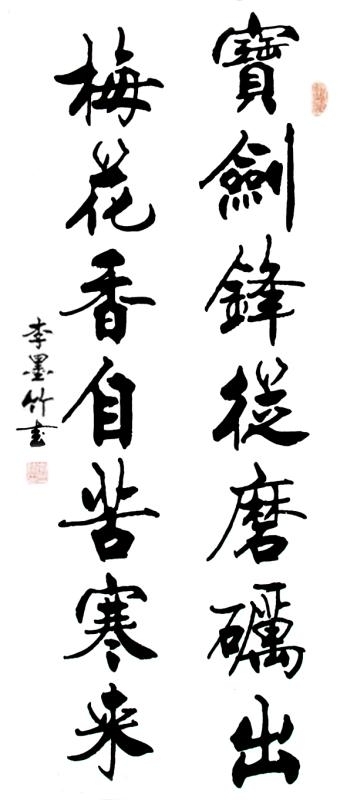 寶劍鋒從磨礪出
梅花香自苦寒来
李墨竹书